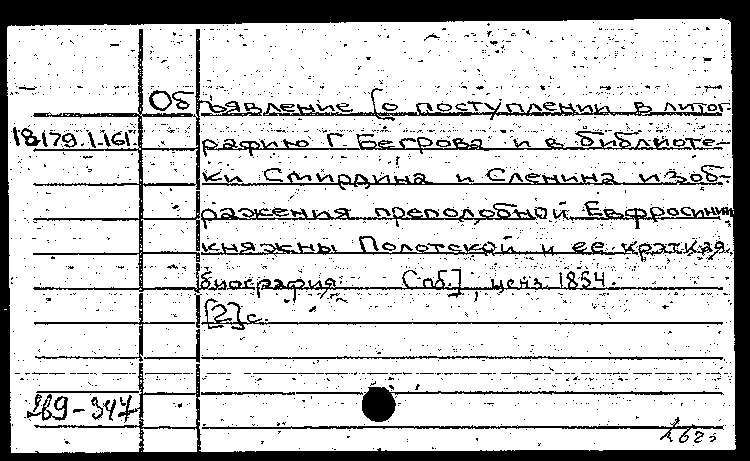 Объявление [о поступлении в литог
18.179.1.161. рафию Г. Бегрова и в библиоте-
ки Смирдина и Сленина изоб-
ражения преподобной Евфросинии
княжны Полотской и ее краткая
биография. Спб.], ценз. 1834.
[2] с.
269-347